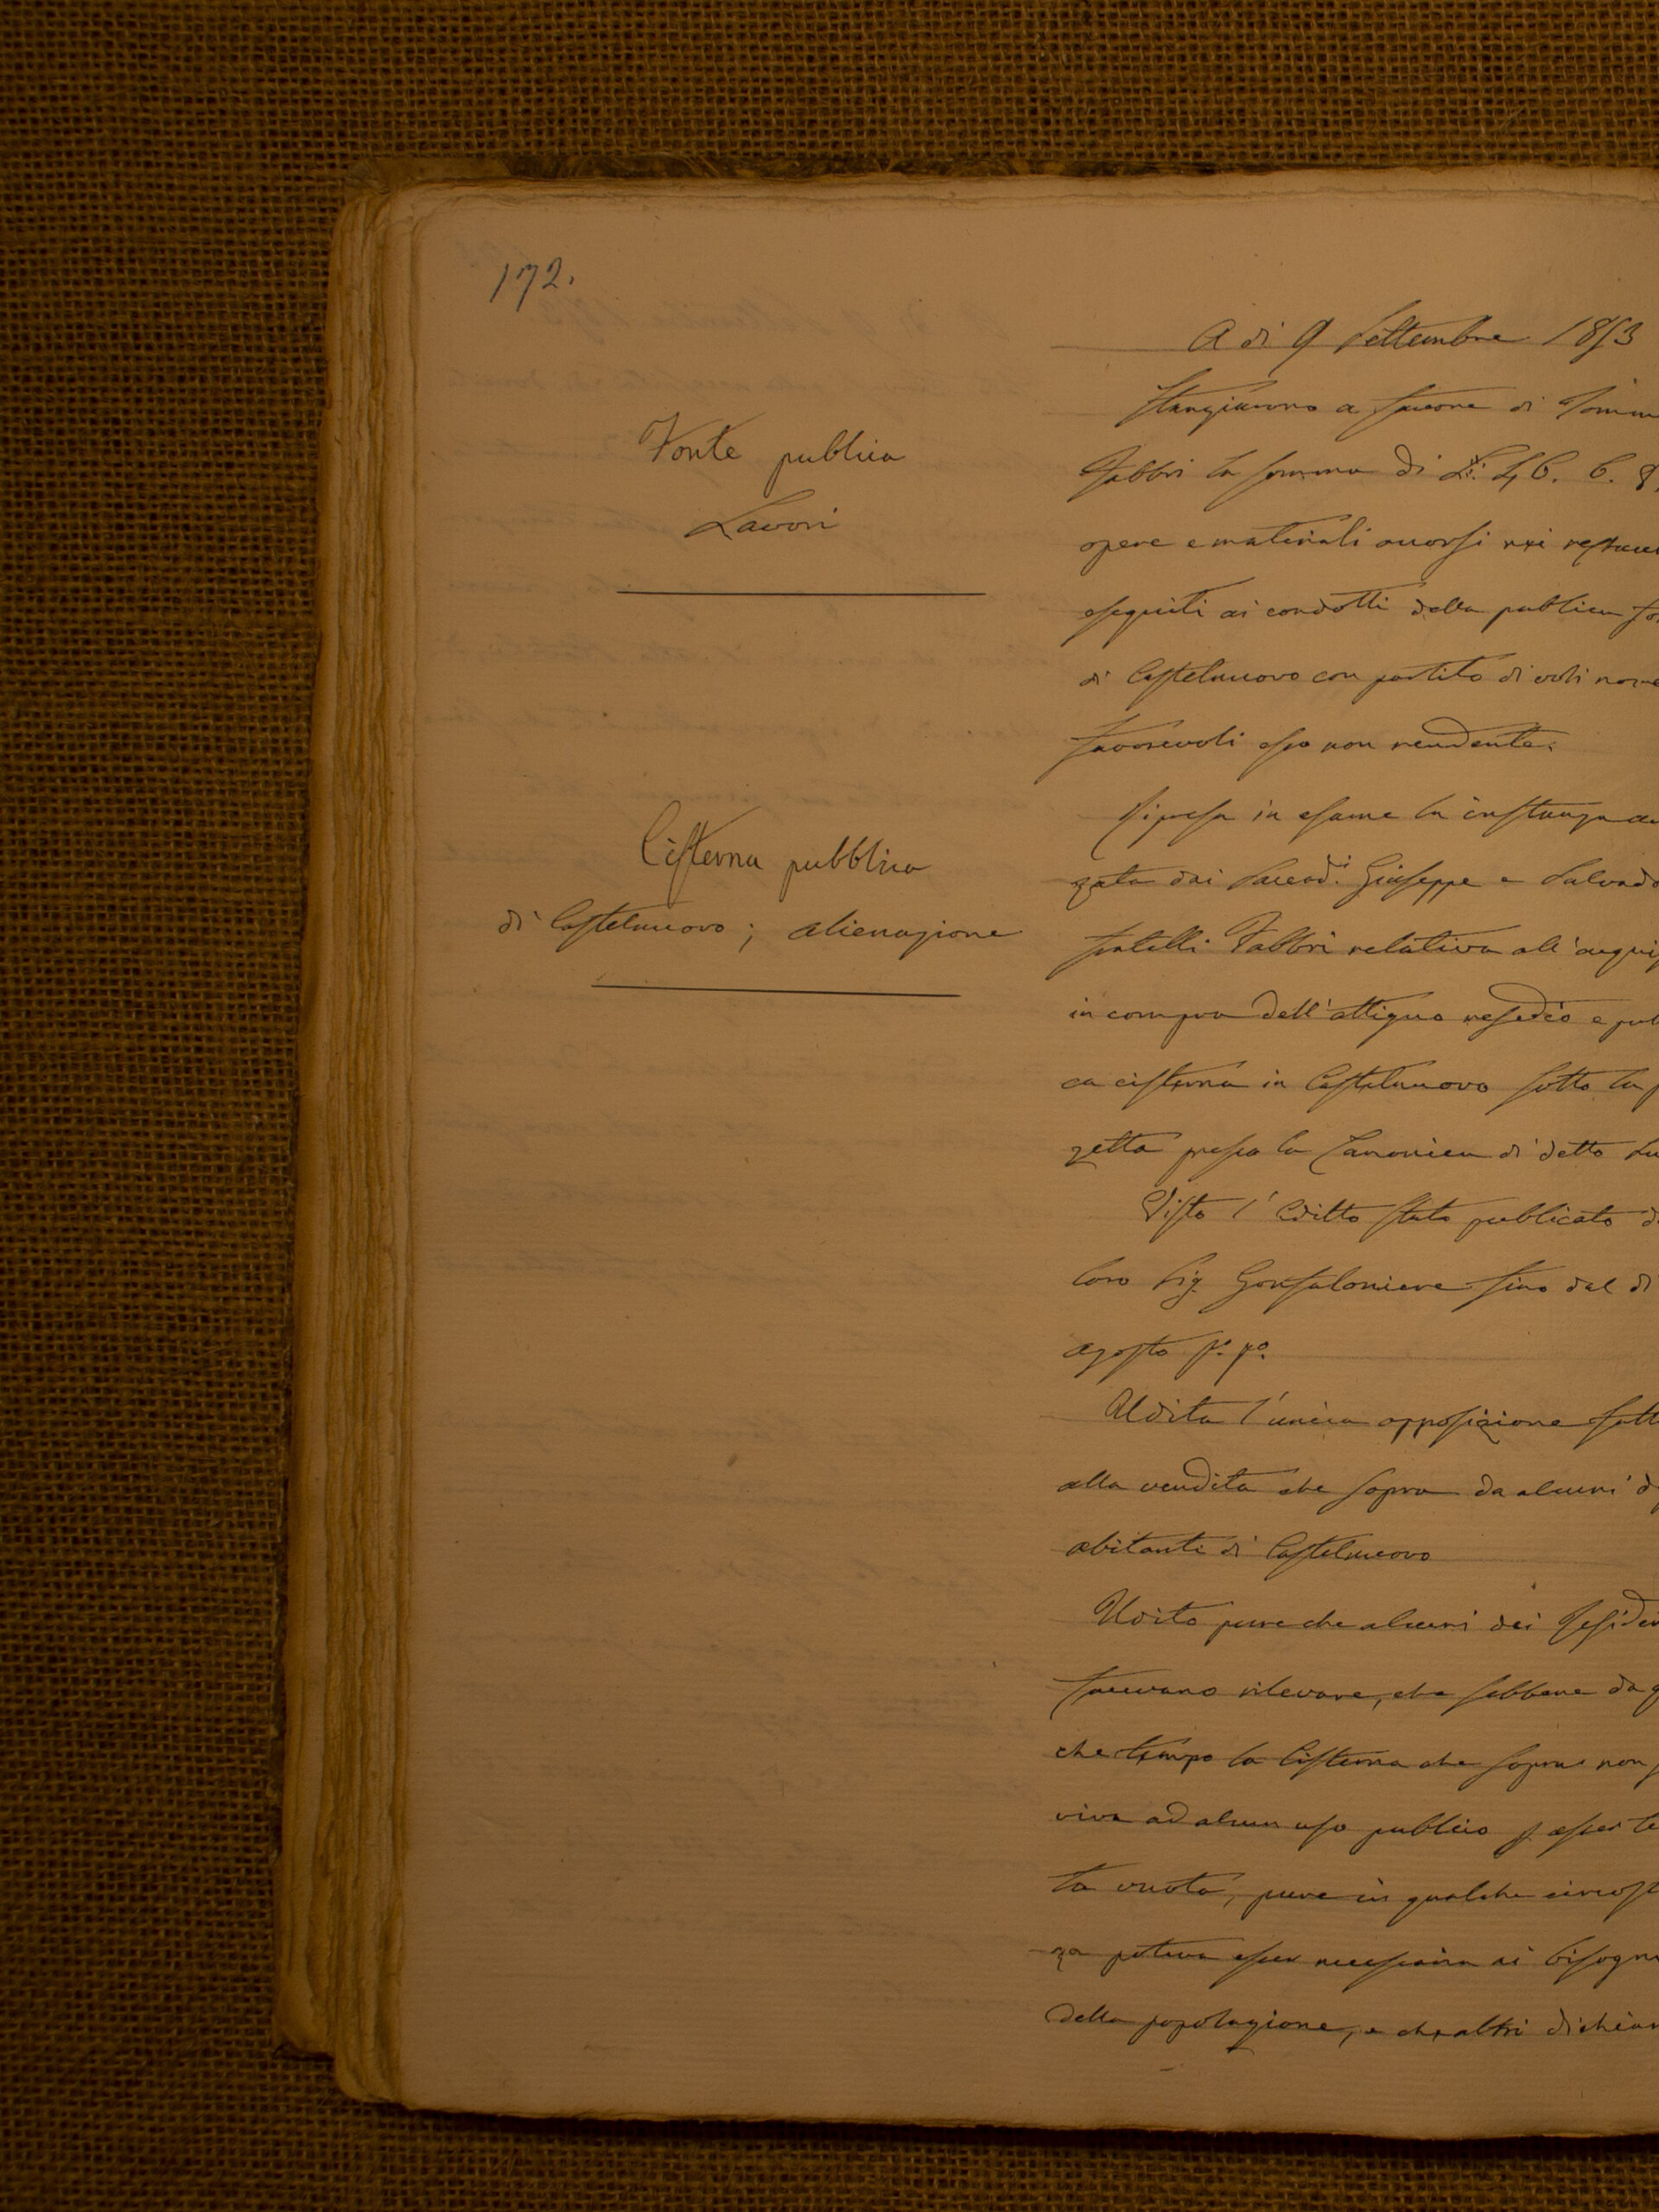 172.
A di 9 Settembre 1853
Fonte publica
Lavori
Stanziarono a favore di Tomm
Fabbri la somma di L. 46. 6. 8.
opere e materiali occorsi nei restau
eseguiti ai condotti della publica fo
di Castelnuovo con partito di voti nove
favorevoli esso non rendente.
Cisterna pubblica
di Castelnuovo; alienazione
Si presa in esame la instanza a
zata dai Sacerdi. Giuseppe e Salvado
fratelli Fabbri relativa all'acqui
in compra dell'attiguo resedio e pub
ca cisterna in Castelnuovo sotto la p
zetta presso la Canonica di detto Lu
Visto l'Editto stato publicato d
loro Sig. Gonfaloniere fino dal di
agosto p.o p.o
Udita l'unica opposizione fatt
alla vendita che sopra da alcuni d
abitanti di Castelnuovo
Udito pure che alcuni dei Residen
facevano rilevare, che sebbene da q
che tempo la Cisterna che sopra non s
viva ad alcun uso publico p. esser te
ta vuota, pure in qualche circost
za poteva esser necessaria ai bisogn
della popolazione, e che altri dichiar